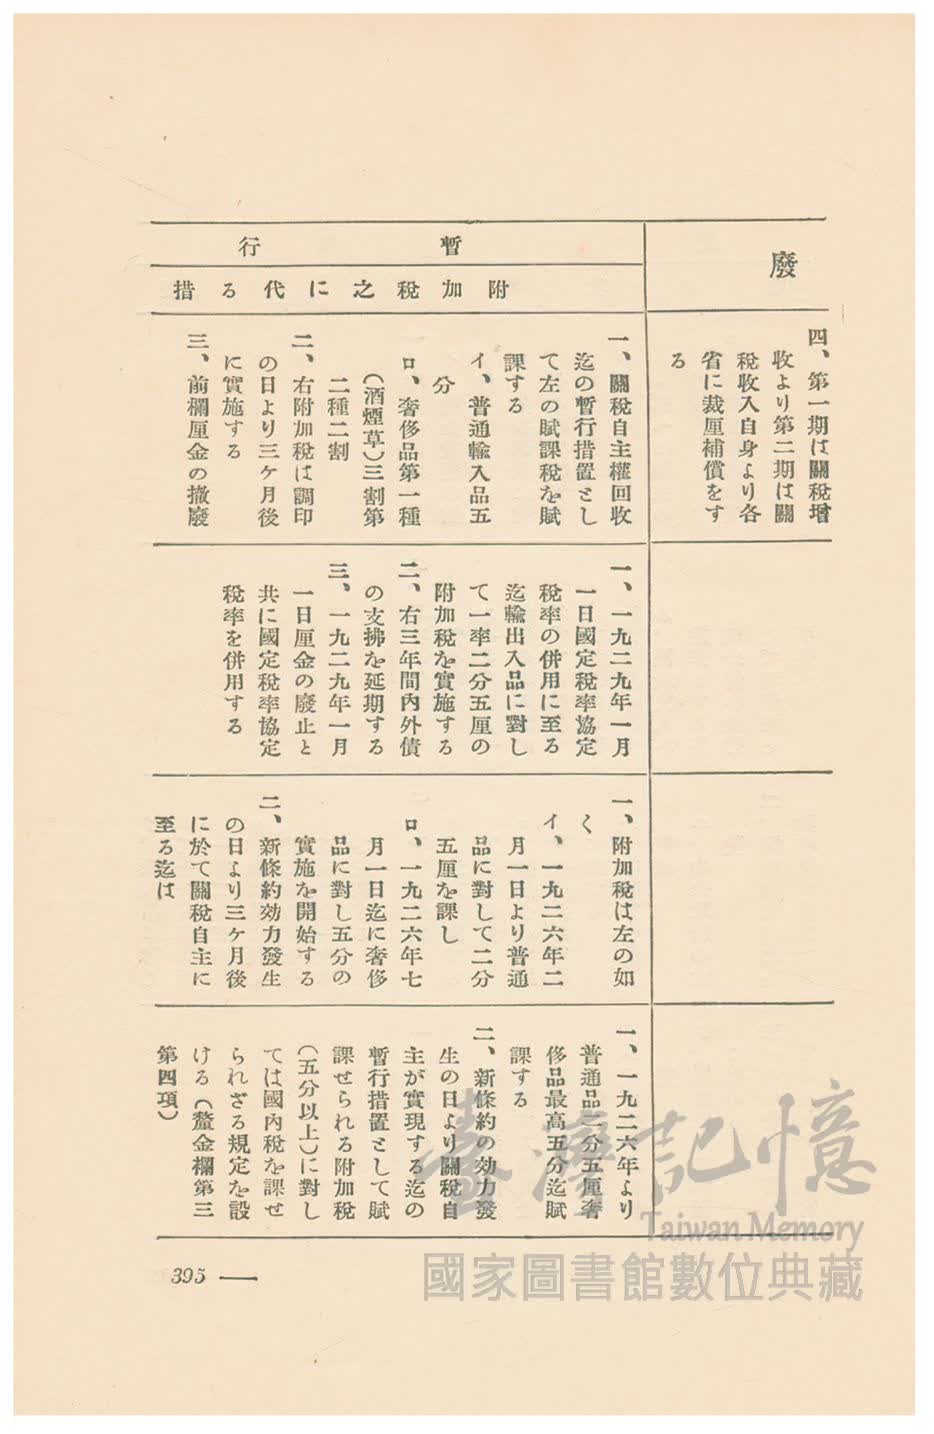 廢
四、第一期は關稅增
收より第二期は關
稅收入自身より各
省に裁厘補償をす
る
暫行
附加稅之に代る措
一、關稅自主權回收
迄の暫行措置とし
て左の賦課稅を賦
課する
イ、普通輸入品五
分
ロ、奢侈品第一種
（酒煙草）三割第
二種二割
二、右附加稅は調印
の日より三ケ月後
に實施する
三、前欄厘金の撤廢
一、一九二九年一月
一日國定稅率協定
稅率の併用に至る
迄輸出入品に對し
て一率二分五厘の
附加稅を實施する
二、右三年間內外債
の支拂を延期する
三、一九二九年一月
一日厘金の廢止と
共に國定稅率協定
稅率を併用する
一、附加稅は左の如
く
イ、一九二六年二
月一日より普通
品に對して二分
五厘を課し
ロ、一九二六年七
月一日迄に奢侈
品に對し五分の
實施を開始する
二、新條約効力發生
の日より三ケ月後
に於て關稅自主に
至る迄は
一、一九二六年より
普通品二分五厘奢
侈品最高五分迄賦
課する
二、新條約の効力發
生の日より關稅自
主が實現する迄の
暫行措置として賦
課せられる附加稅
（五分以上）に對し
ては國內稅を課せ
られざる規定を設
ける（釐金欄第三
第四項）
395 —
臺灣記憶
Taiwan Memory
國家圖書館數位典藏